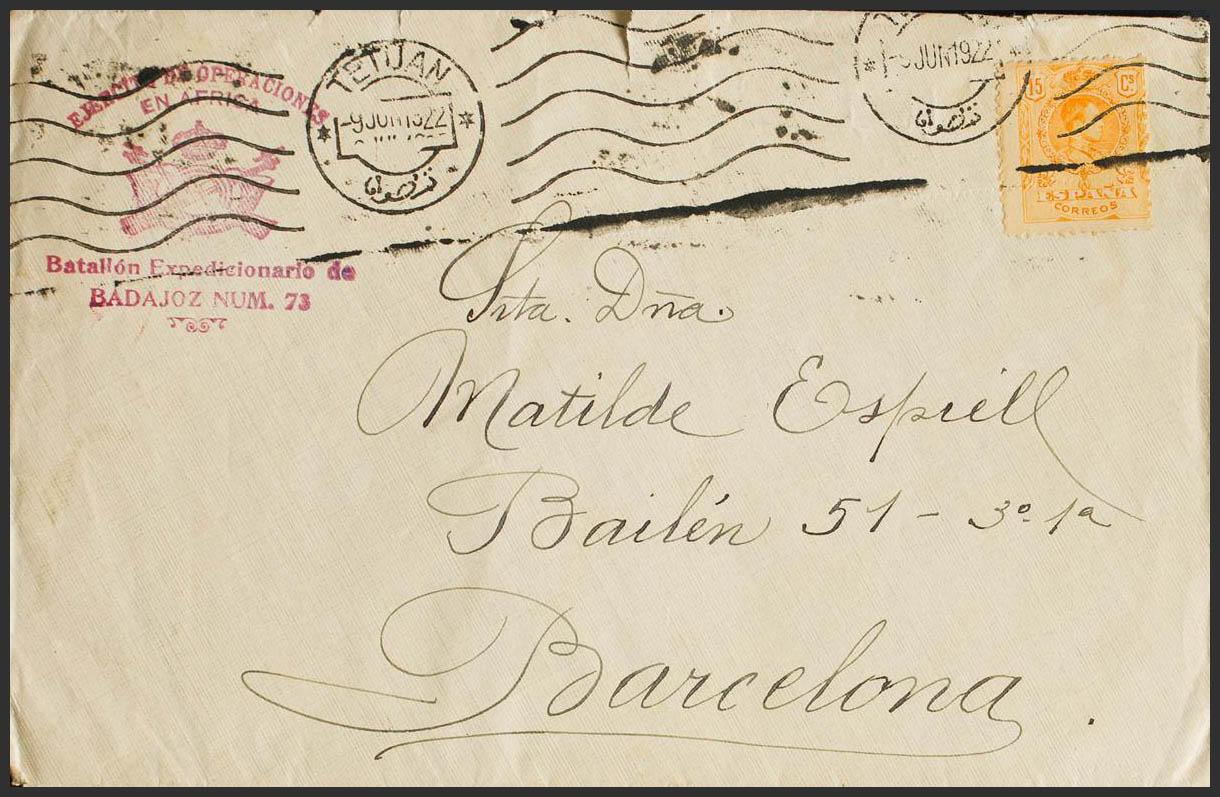 EJERCITO DE OPERACIONES
EN AFRICA
Batallón Expedicionario de
BADAJOZ NUM. 73
TETUAN
-9JUN1922
تطوان
-9JUN1922
تطوان
15 Cs
ESPAÑA
CORREOS
Srta. Dña.
Matilde Espriell
Bailén 51 - 3º-1ª
Barcelona.